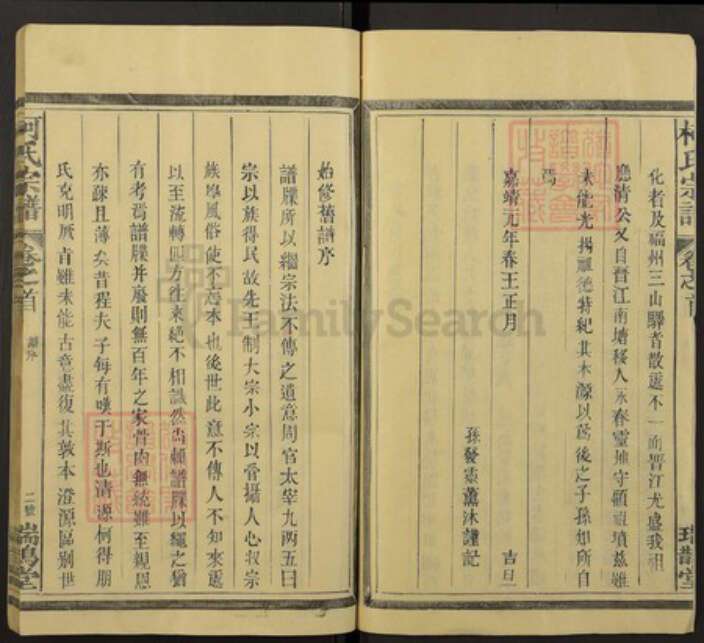 柯氏宗譜
卷之首
化者及福州三山驛者散遷不一而晉江尤盛我祖
應清公又自晉江南塘移入永春靈地守顧祖墳茲雖
未能光揚祖德特紀其本源以爲後之子孫知所自
焉
嘉靖元年春王正月
吉日
孫發震薰沐謹記
始修舊譜序
譜牒所以繼宗法不傳之遺意周官太宰九兩五曰
宗以族得民故先王制大宗小宗以管攝人心收宗
族厚風俗使不忘本也後世此意不傳人不知來處
以至流轉四方往來絕不相識然尚賴譜牒以繩之猶
有考焉譜牒并廢則無百年之家骨肉無統雖至親恩
亦疎且薄矣昔程夫子每有嘆于斯也清源柯得朋
氏克明厥旨雖未能古意盡復其敦本澄源區別世
柯氏宗譜
卷之首
譜序
二號
瑞鵲堂
FamilySearch